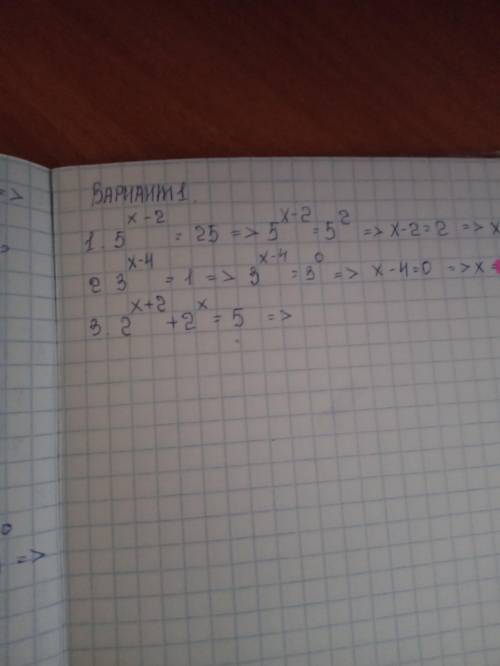 ВАРИАНТ 1.
1. 5^(x-2) = 25 => 5^(x-2) = 5^2 => x-2=2 => x
2 3^(x-4) = 1 => 3^(x-4) = 3^0 => x-4=0 => x=
3. 2^(x+2) + 2^x = 5 =>
=>
0
=>